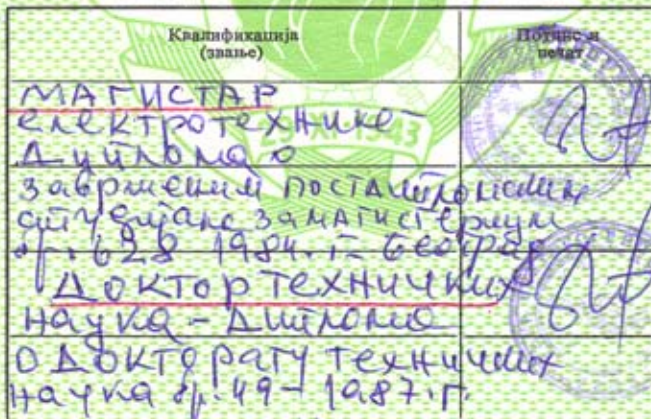 Квалификација
(звање)
Потпис и
печат
МАГИСТАР
електротехнике
Диплома о
завршеним постдипломским
студијама за магистеријум
бр. 628 1984. г. Београд
ДОКТОР ТЕХНИЧКИХ
наука - Диплома
О ДОКТОРАТУ техничких
наука бр. 49 - 1987. г.